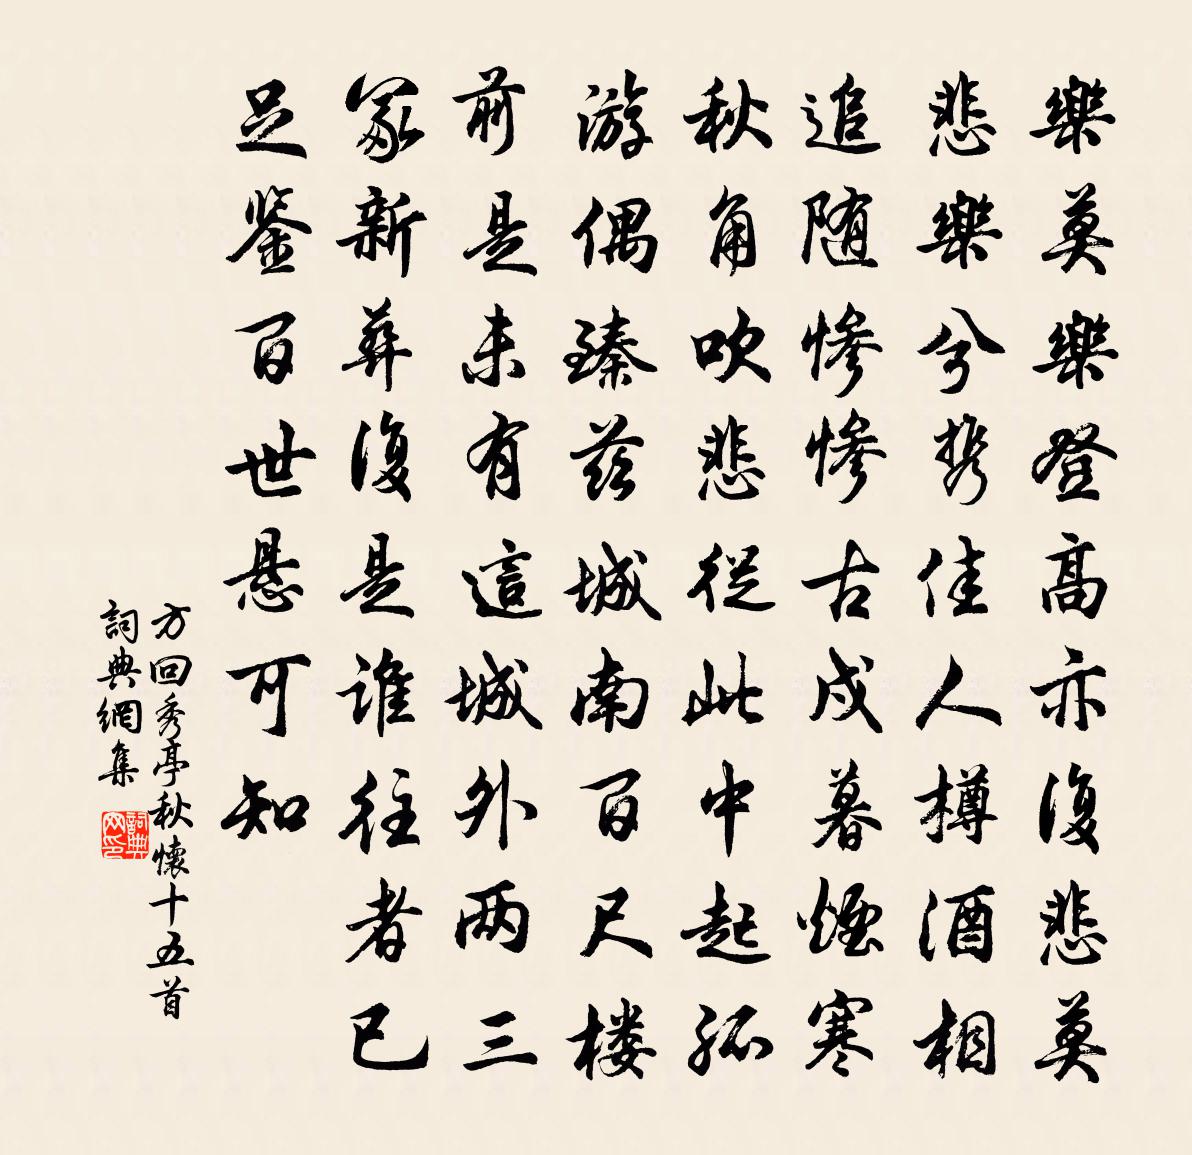 樂莫樂登高亦復悲莫
悲樂兮携佳人樽酒相
追随慘慘古戍暮煙寒
秋角吹悲從此中起孤
游偶臻茲城南百尺楼
前是未有這城外两三
冢新葬復是谁往者已
足鉴百世悬可知
方回秀亭秋懷十五首
詞典網集
詞典网印